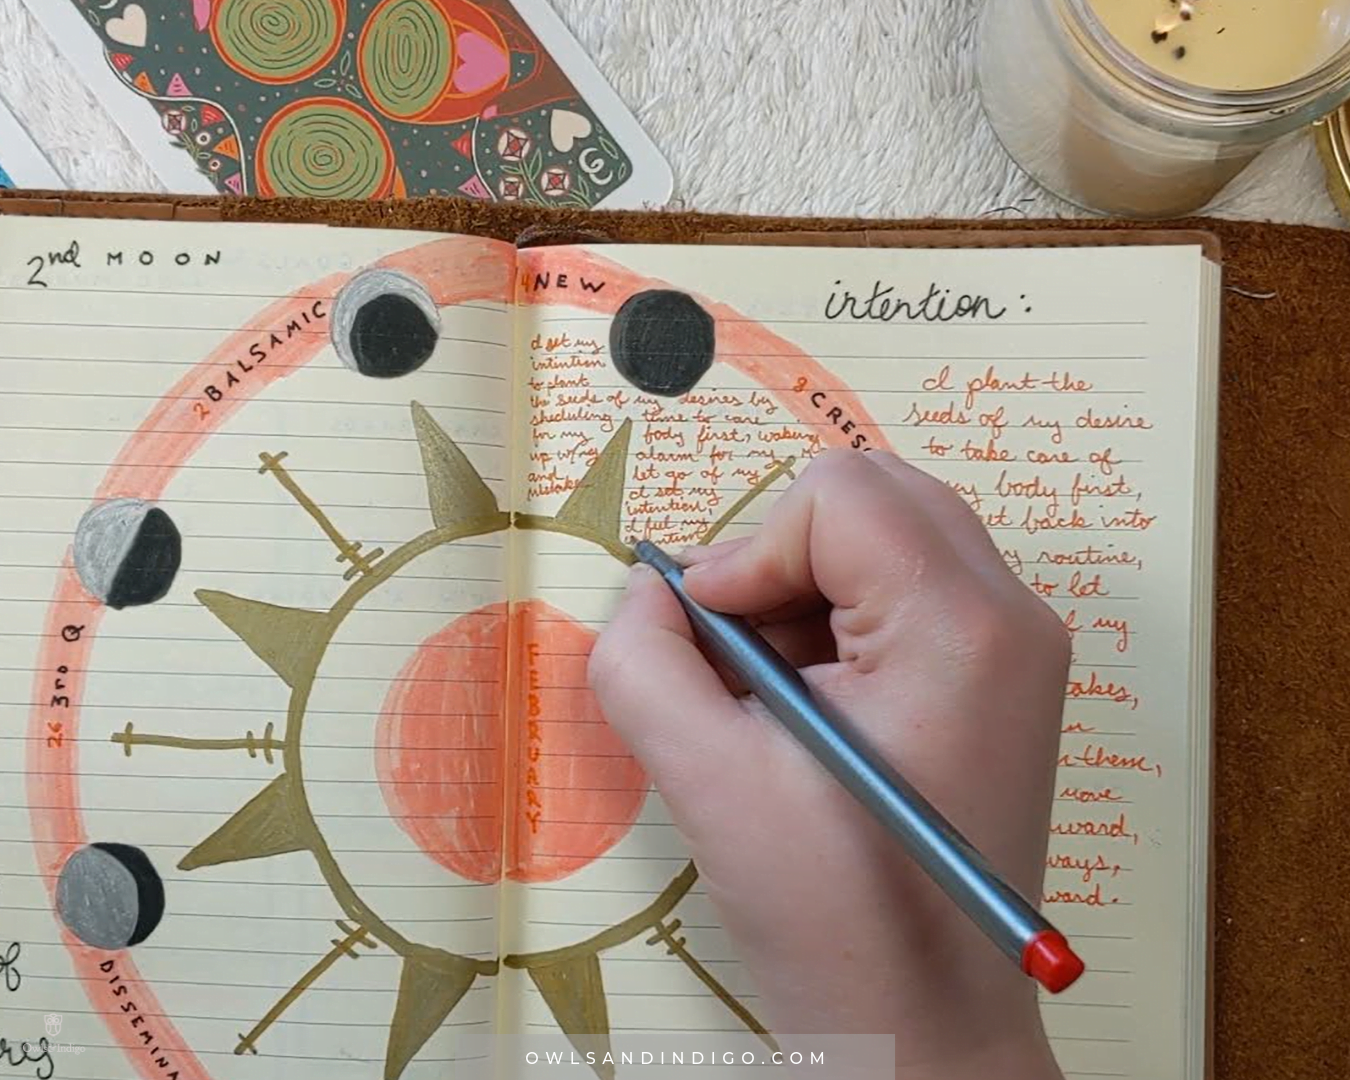 2nd MOON
2 BALSAMIC
26 3rd Q
DISSEMINA
of
res
4 NEW
8 CRESC
I set my
intention
to plant
the seeds of my desires by
sheduling time to care
for my body first, waking
up w/ my alarm for my
and let go of my
mistakes
I set my
intention,
I feel my
FEBRUARY
intention:
I plant the
seeds of my desire
to take care of
my body first,
get back into
my routine,
to let
of my
takes,
them,
move
ward,
ways,
ward.
Owls&Indigo
OWLSANDINDIGO.COM